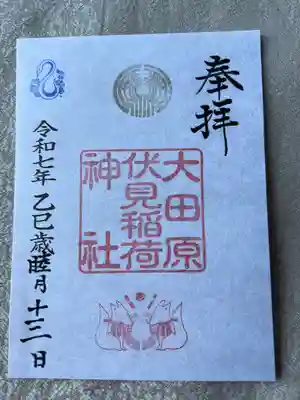 奉拝
大田原
伏見稲荷
神社
令和七年乙巳歳睦月十三日